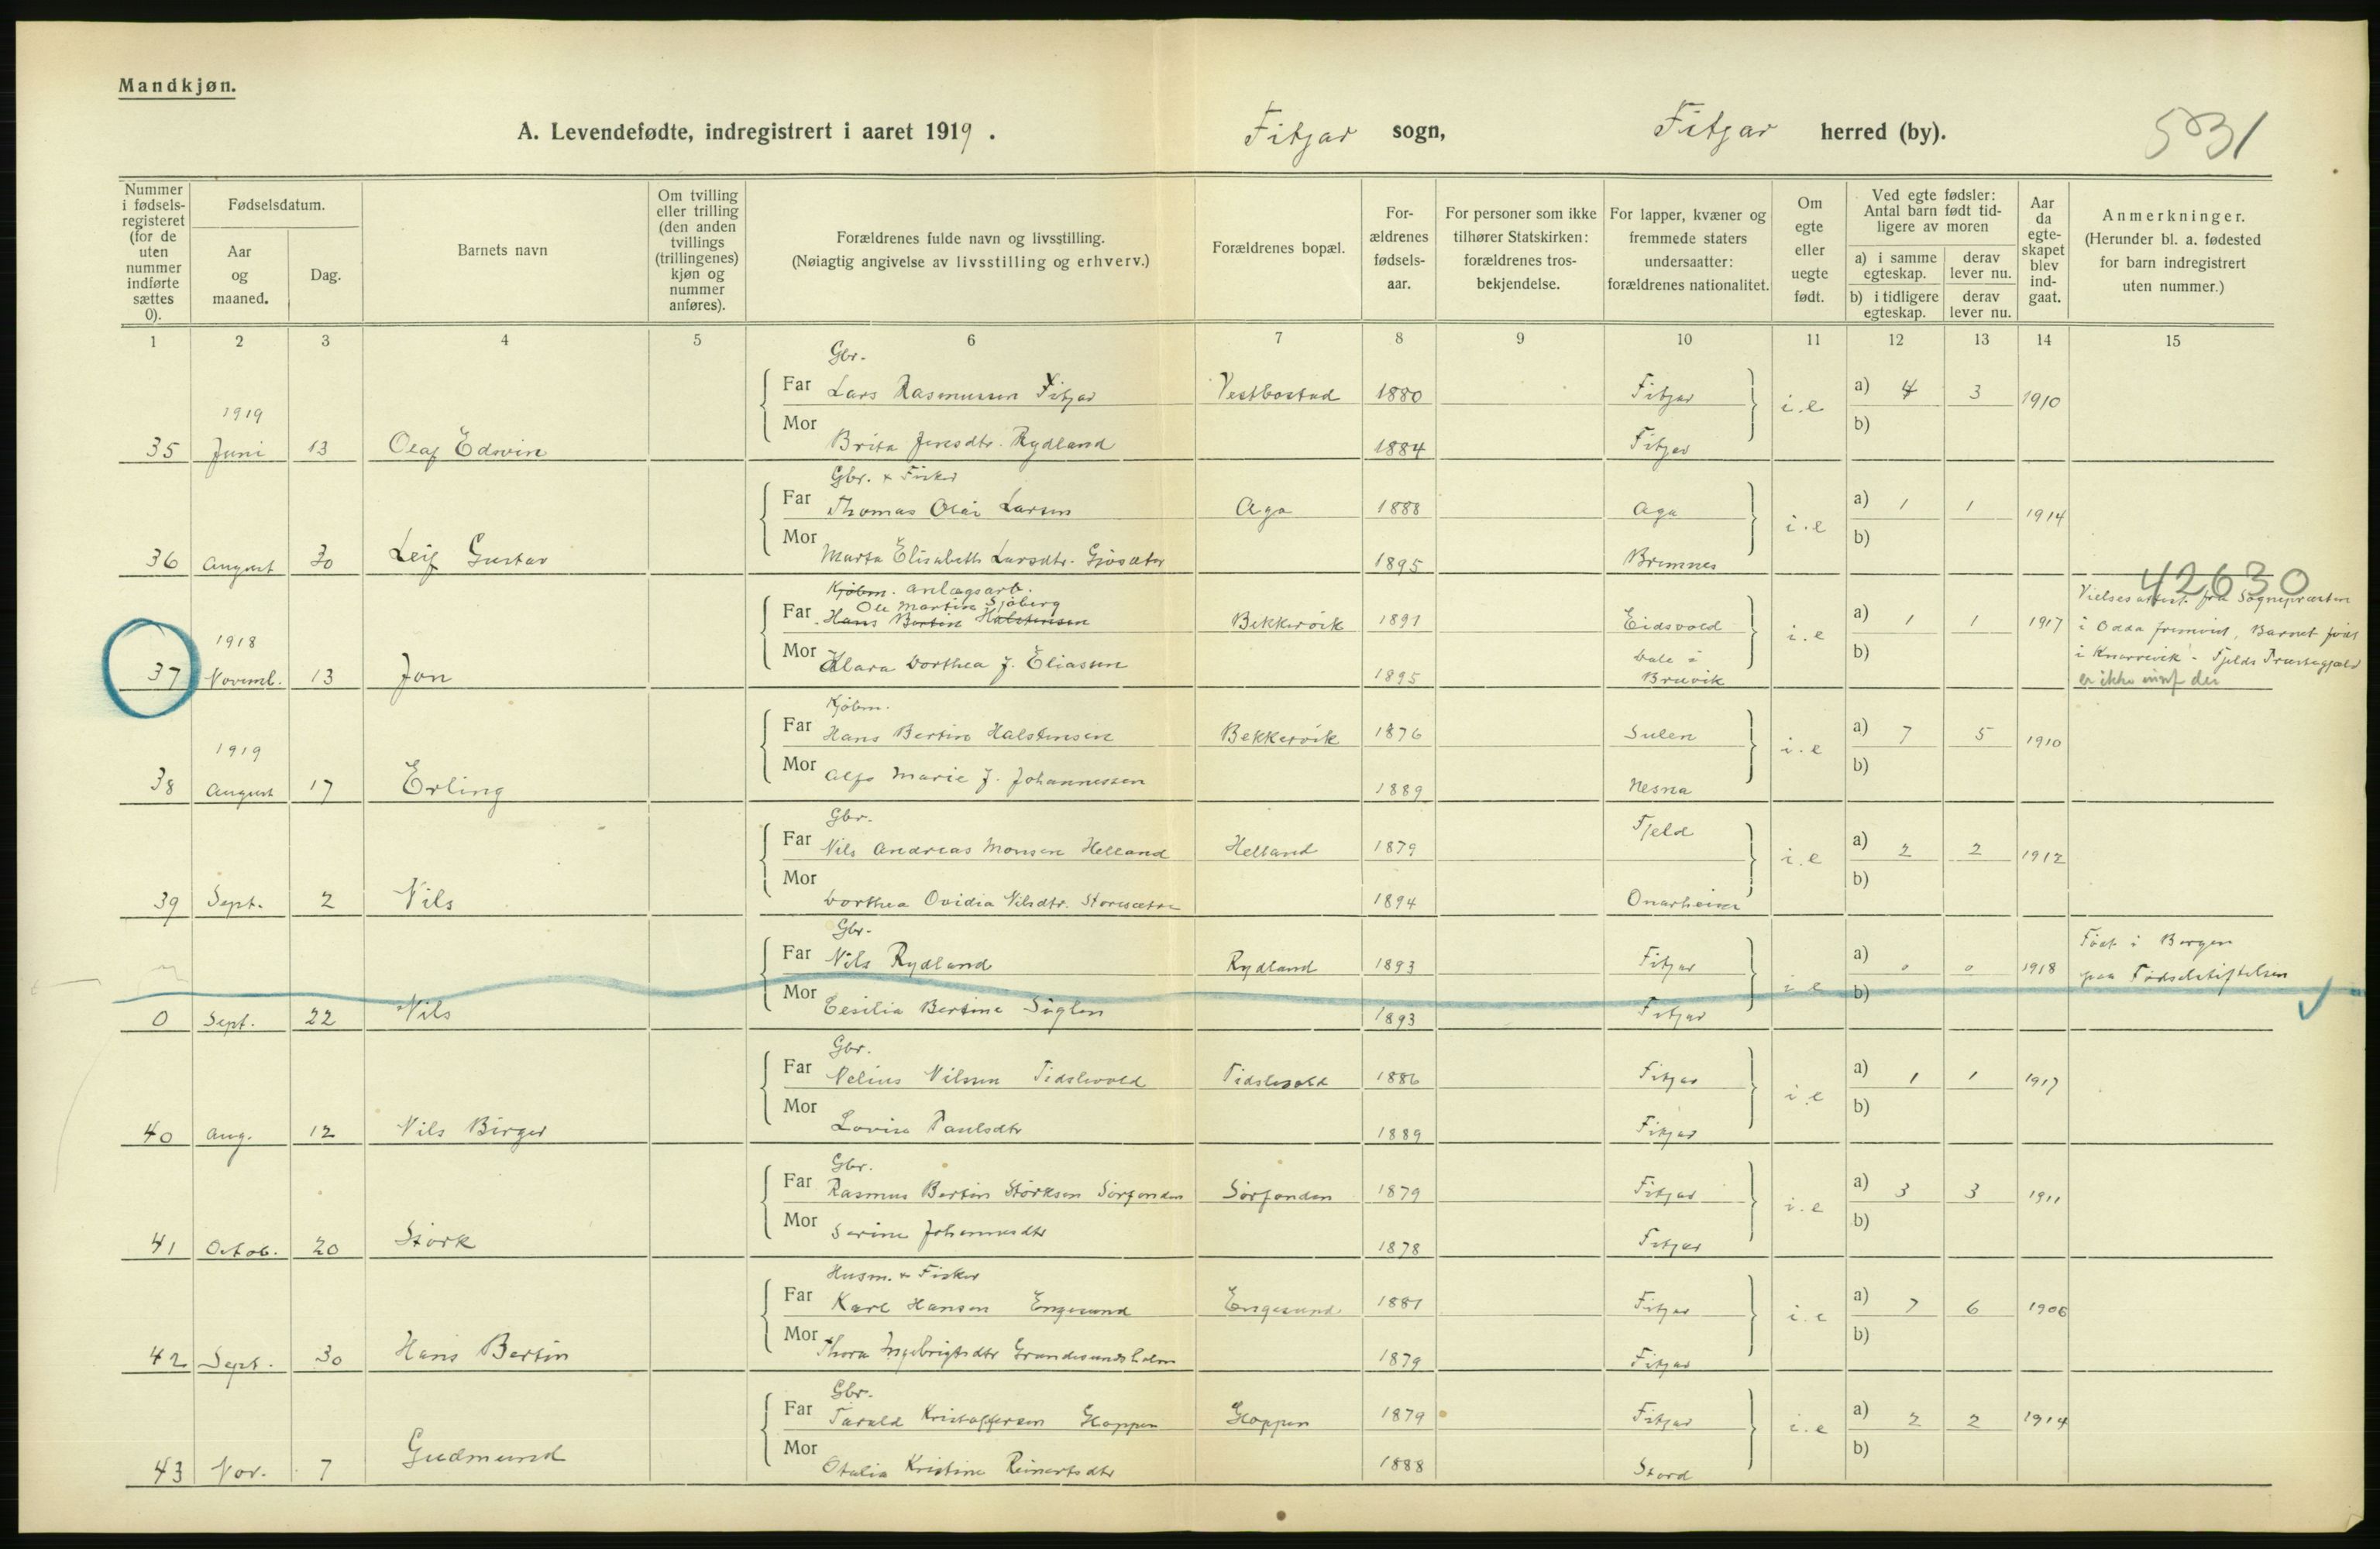 Mandkjøn.
A. Levendefødte, indregistrert i aaret 1919. Fitjar sogn, Fitjar herred (by). 531
Nummer i fødselsregisteret (for de uten nummer indførte sættes 0).
Fødselsdatum.
Aar og maaned.
Dag.
Barnets navn
Om tvilling eller trilling (den anden tvillings (trillingenes) kjøn og nummer anføres).
Forældrenes fulde navn og livsstilling.
(Nøiagtig angivelse av livsstilling og erhverv.)
Forældrenes bopæl.
Forældrenes fødselsaar.
For personer som ikke tilhører Statskirken: forældrenes trosbekjendelse.
For lapper, kvæner og fremmede staters undersaatter: forældrenes nationalitet.
Om egte eller uegte født.
Ved egte fødsler: Antal barn født tidligere av moren
a) i samme egteskap. derav lever nu.
b) i tidligere egteskap. derav lever nu.
Aar da egteskapet blev indgaat.
Anmerkninger.
(Herunder bl. a. fødested for barn indregistrert uten nummer.)
1 2 3 4 5 6 7 8 9 10 11 12 13 14 15
Gbr.
Far Lars Rasmussen Fitjar Vestbostad 1880 Fitjar i.e a) 4 3 1910
1919
Mor Brita Jensdtr. Rydland 1884 Fitjar b)
35 Juni 13 Olaf Edvin
Gbr. + Fisker
Far Thomas Olai Larsen Aga 1888 Aga i.e a) 1 1 1914
Mor Marta Elisabeth Larsdtr. 1895 Bremnes b)
36 August 30 Leif Gustav
42630
Kjøbm. anlægsarb.
Ole Martin Sjøberg
Far Hans Bertin Halstensen Bekkervik 1891 Eidsvold i.e a) 1 1 1917
1918
Mor Klara Dorthea J. Eliassen 1895 Dale i Bruvik b)
37 Novemb. 13 Jon
Vielsesattest fra Sognepræsten
i Odda fremvist. Barnet født
i Knarrevik - Fjelds Præstegjæld
er ikke indf der
Kjøbm.
Far Hans Bertin Halstensen Bekkervik 1876 Sulen i.e a) 7 5 1910
1919
Mor Marie J. Johannessen 1889 Nesna b)
38 August 17 Erling
Gbr.
Far Nils Andreas Monsen Helland Helland 1879 Fjeld i.e a) 2 2 1912
Mor Dorthea Ovidia Nilsdtr. Storesætre 1894 Onarheim b)
39 Sept. 2 Nils
Gbr.
Far Nils Rydland Rydland 1893 Fitjar i.e a) 0 0 1918
Født i Bergen
paa Fødselsstiftelsen
Mor Cesilia Bertine 1893 Fitjar b)
0 Sept. 22 Nils
Gbr.
Far Nelius Nilsen Tislevold Tislevold 1886 Fitjar i.e a) 1 1 1917
Mor Lovise Paulsdtr 1889 Fitjar b)
40 Aug. 12 Nils Birger
Gbr.
Far Rasmus Bertin Størksen Sørfonden Sørfonden 1879 Fitjar i.e a) 3 3 1911
Mor Serine Johannesdtr 1878 Fitjar b)
41 Octob. 20 Størk
Husm. + Fisker
Far Karl Hansen Engesund Engesund 1881 Fitjar i.e a) 7 6 1906
Mor Thora Ingebrigtsdtr 1879 Fitjar b)
42 Sept. 30 Hans Bertin
Gbr.
Far Tarald Kristoffersen Gloppen Gloppen 1879 Fitjar i.e a) 2 2 1914
Mor Otalia Kristine Reinertsdtr 1888 Stord b)
43 Nov. 7 Gudmund